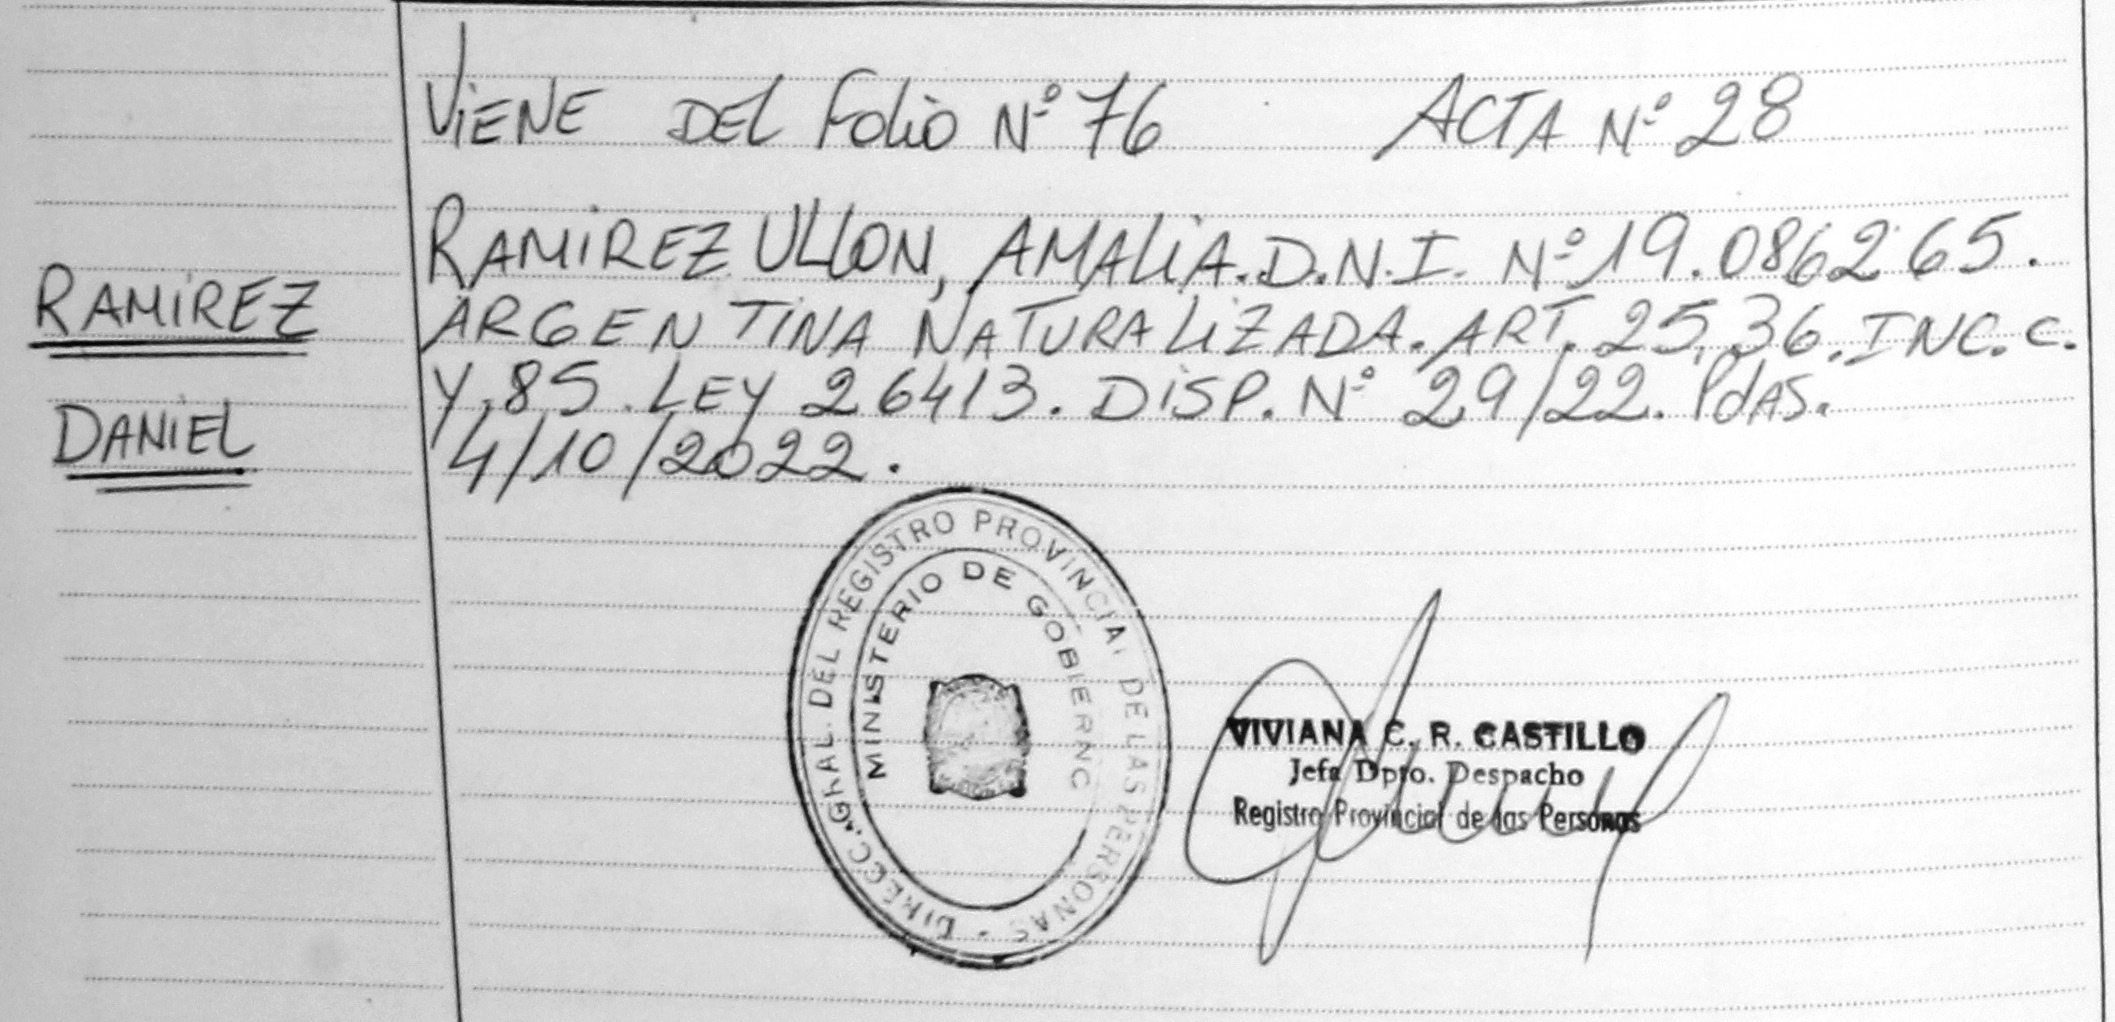 ViENE DEL Folio Nº 76 ACTA Nº 28
RAMiREZ ULLON, AMALiA. D.N.I. Nº 19.086265.
RAMiREZ
ARGENTiNA NATURALiZADA. ART. 25, 36. INC. C.
Y, 85. LEY 26413. DiSP. Nº 29/22. PdAS.
DANiEL
4/10/2022.
DIRECC. GRAL. DEL REGISTRO PROVINCIAL DE LAS PERSONAS
MINISTERIO DE GOBIERNO
VIVIANA C. R. CASTILLO
Jefa Dpto. Despacho
Registro Provincial de las Personas